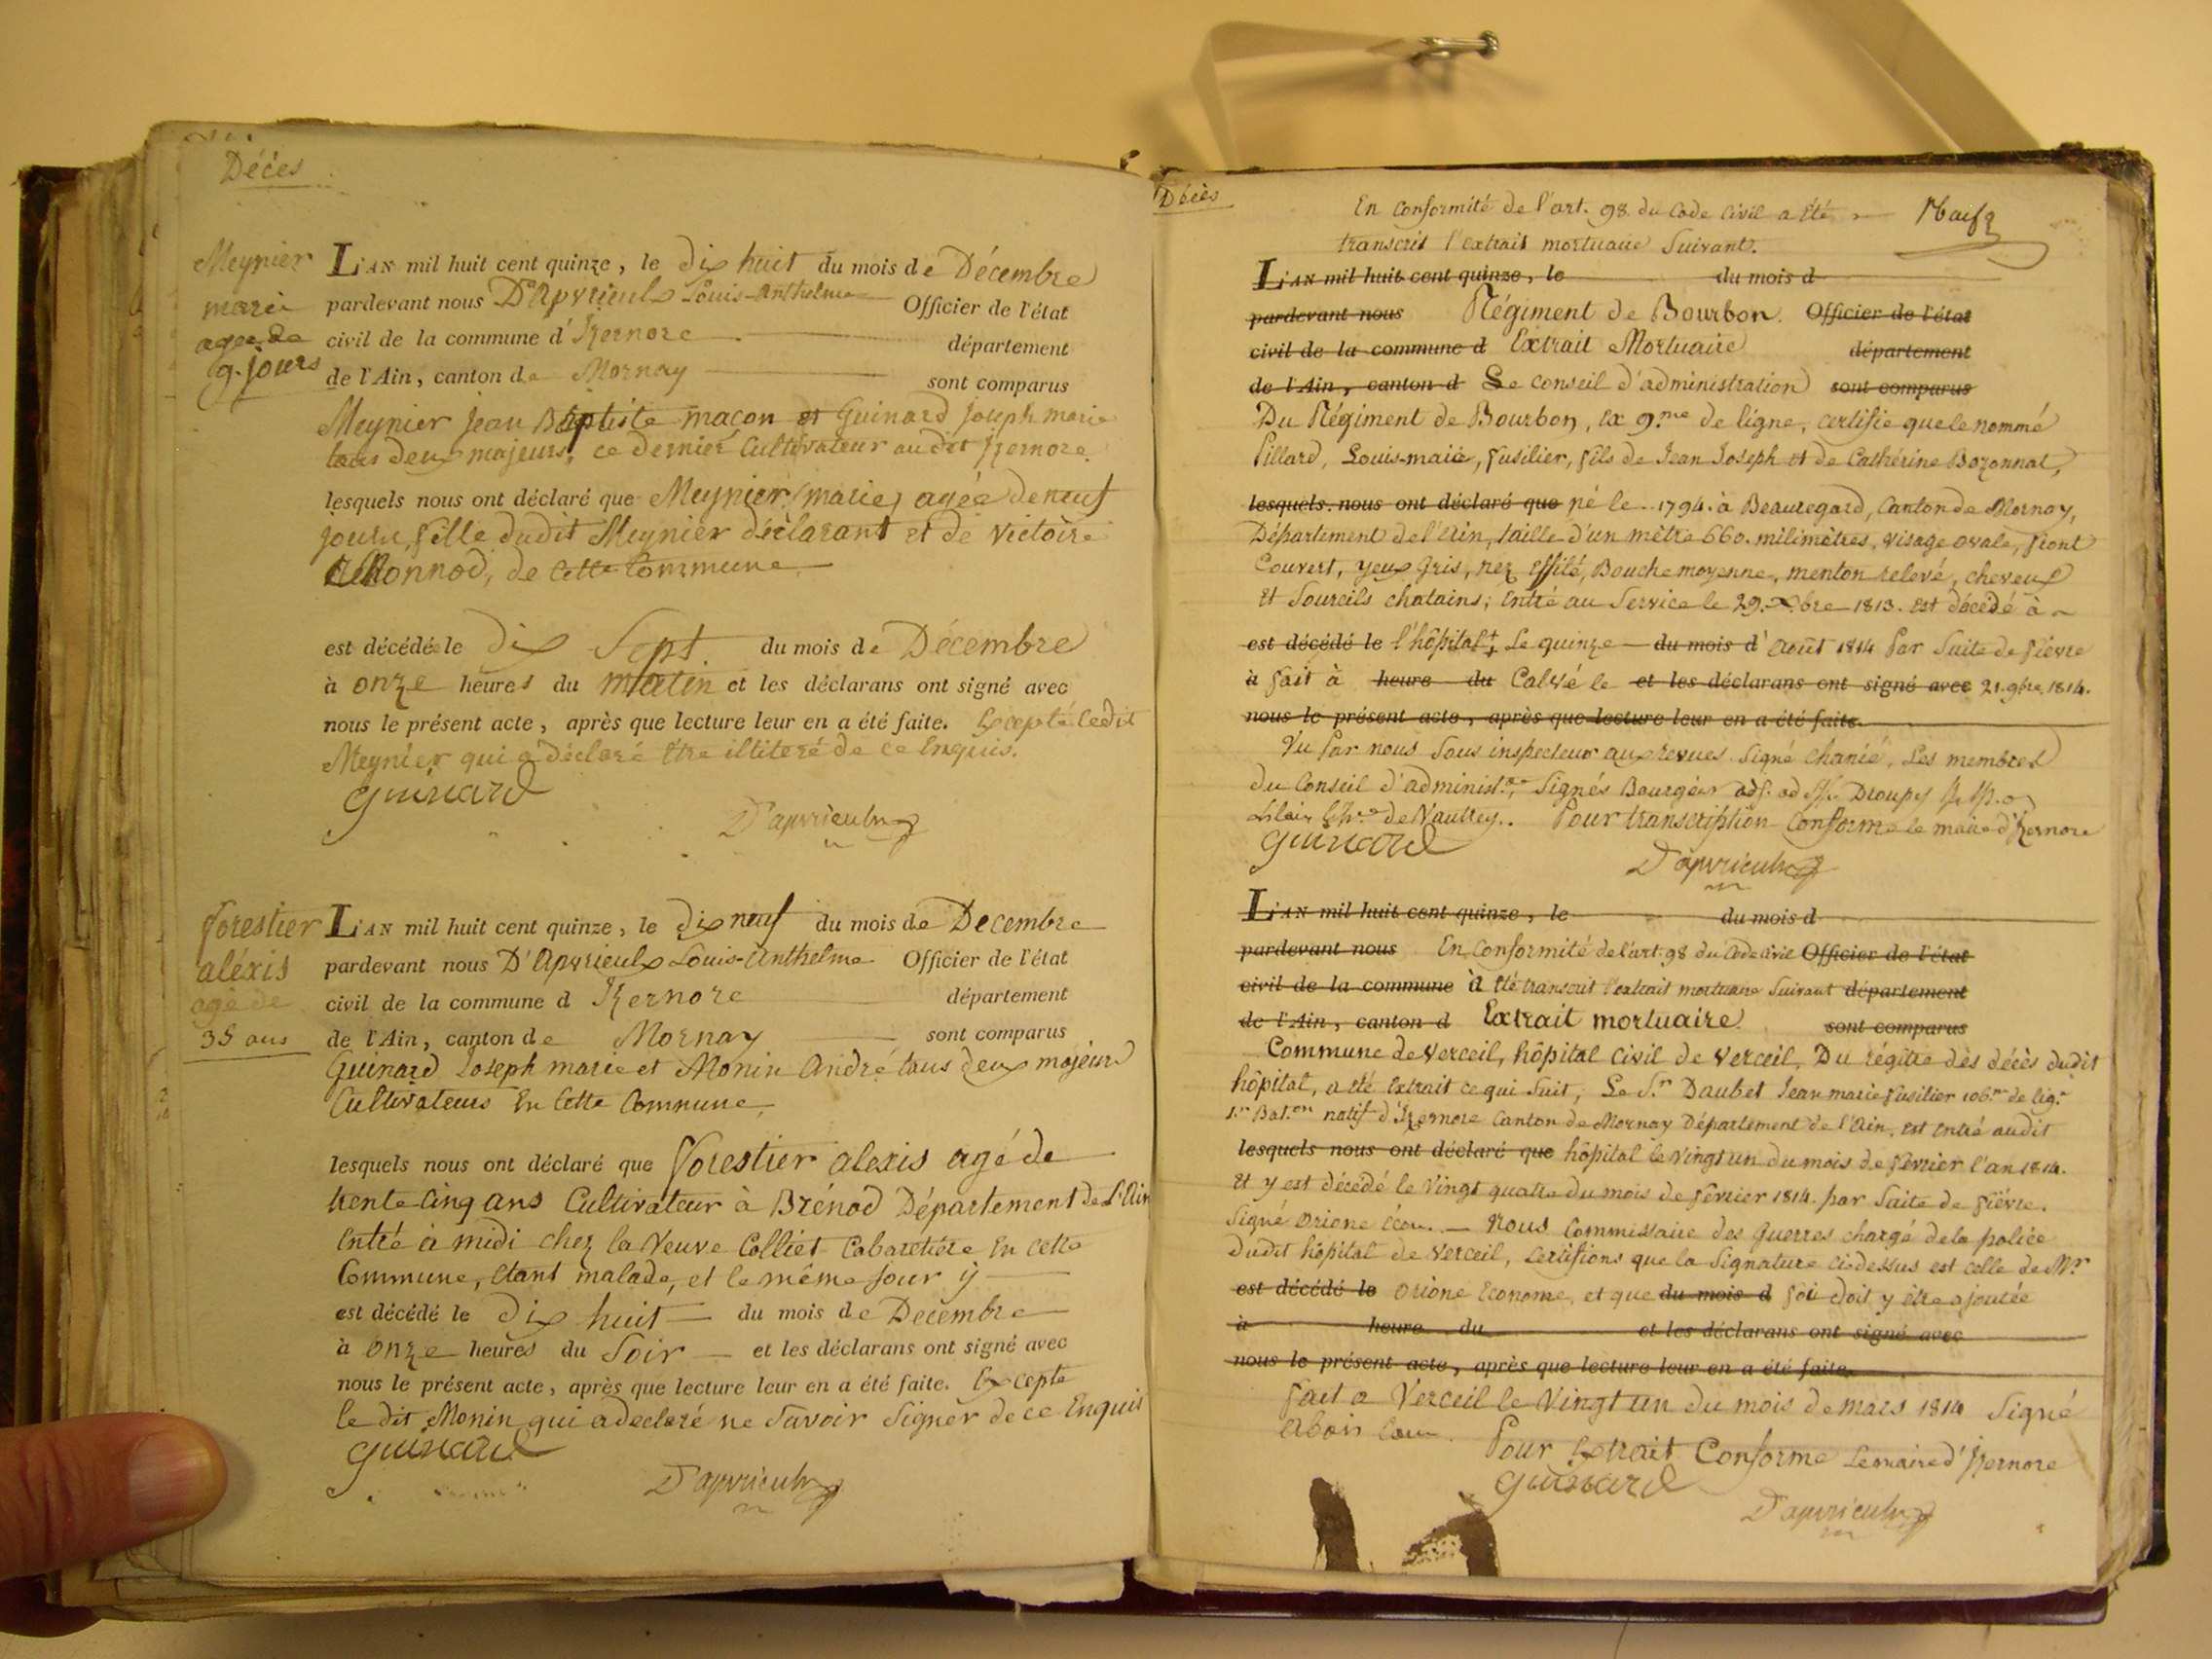 Décès
Meynier
marie
agee de
9. jours
L'AN mil huit cent quinze, le dix huit du mois de Décembre
pardevant nous D'Apvrieulx Louis-Anthelme Officier de l'état
civil de la commune d'Izernore département
de l'Ain, canton de Mornay sont comparus
Meynier jean Baptiste maçon et Guinard joseph marie
tous deux majeurs, ce dernier Cultivateur audit Izernore
lesquels nous ont déclaré que Meynier (marie) agée de neuf
jours, fille dudit Meynier déclarant et de Victoire
de cette Commune
est décédée le dix Sept du mois de Décembre
à onze heures du matin et les déclarans ont signé avec
nous le présent acte, après que lecture leur en a été faite. Excepté ledit
Meynier qui a déclaré être illiteré de ce Enquis.
Guinard
D'apvrieulx
Forestier
alexis
agé de
35 ans
L'AN mil huit cent quinze, le dix neuf du mois de Decembre
pardevant nous D'Apvrieulx Louis-Anthelme Officier de l'état
civil de la commune d Izernore département
de l'Ain, canton de Mornay sont comparus
Guinard Joseph marie et Monin André tous deux majeurs
Cultivateurs En Cette Commune,
lesquels nous ont déclaré que Forestier alexis agé de
trente cinq ans Cultivateur à Brénod Département de L'Ain
Entré à midi chez la Veuve Colliet Cabaretière En cette
Commune, étant malade, et le même jour y
est décédé le dix huit du mois de Decembre
à onze heures du Soir et les déclarans ont signé avec
nous le présent acte, après que lecture leur en a été faite. Excepté
le dit Monin qui a declaré ne Savoir Signer de ce Enquis
Guinard
D'apvrieulx
Décès
En Conformité de l'art. 98 du Code Civil a été
transcrit l'extrait mortuaire Suivant.
L'AN mil huit cent quinze, le du mois d
pardevant nous Régiment de Bourbon. Officier de l'état
civil de la commune d Extrait Mortuaire département
de l'Ain, canton d Le Conseil d'administration sont comparus
Du Régiment de Bourbon, Ex 9.me de ligne, certifie que le nommé
Pillard, Louis-marie, fusilier, fils de Jean Joseph et de Cathérine Bozonnat,
lesquels nous ont déclaré que né le .. 1794. à Beauregard, Canton de Mornay,
Département de l'Ain, taille d'un mètre 660. milimètres, visage ovale, front
Couvert, yeux Gris, nez Effilé, Bouche moyenne, menton relevé, cheveux
et Sourcils chatains; Entré au Service le 29. Xbre 1813. est décédé à
est décédé le l'hôpital Le quinze du mois d' août 1814 Par Suite de fièvre
à fait à heure du Calvé le et les déclarans ont signé avec 21. 9bre 1814.
nous le présent acte, après que lecture leur en a été faite.
Vu Par nous Sous inspecteur aux revues Signé Les membres
du Conseil d'administ.on Signés
de Vautrey.. Pour transcription Conforme le maire d'Izernore
Guinard
D'apvrieulx
L'AN mil huit cent quinze, le du mois d
pardevant nous En Conformité de l'art. 98 du Code Civil Officier de l'état
civil de la commune à été transcrit l'extrait mortuaire Suivant département
de l'Ain, canton d Extrait mortuaire sont comparus
Commune de Verceil, hôpital Civil de Verceil, Du régître des décès dudit
hôpital, a été Extrait ce qui Suit; Le S.r Daubet Jean marie fusilier 106.me de lig.e
1.er Bat.on natif d'Izernore Canton de Mornay Département de l'Ain, est Entré audit
lesquels nous ont déclaré que hôpital le vingt un du mois de fevrier l'an 1814.
Et y est décédé le Vingt quatre du mois de fevrier 1814. par Suite de fièvre.
Signé Orione Econ. — Nous Commissaire des Guerres chargé de la police
dudit hôpital de Verceil, certifions que la Signature ci-dessus est celle de M.r
est décédé le Orione Econome, et que du mois d foi doit y être ajoutée
à heure du et les déclarans ont signé avec
nous le présent acte, après que lecture leur en a été faite.
Fait a Verceil le Vingt un du mois de mars 1814 Signé
Pour Extrait Conforme Le maire d'Izernore
Guinard
D'apvrieulx